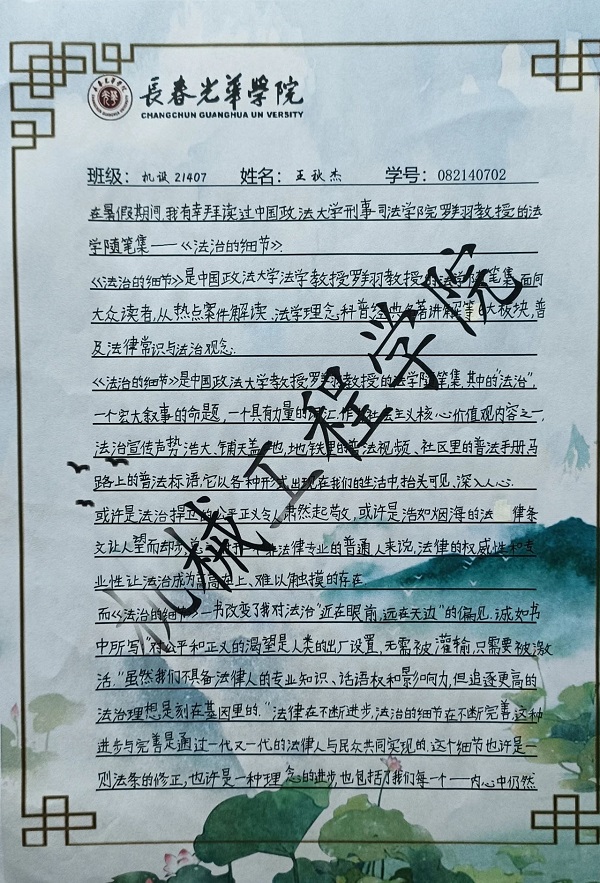 長春光華學院
CHANGCHUN GUANGHUA UN VERSITY
班级: 机设21407 姓名: 王秋杰 学号: 082140702
在暑假期间,我有幸拜读过中国政法大学刑事司法学院罗翔羽教授的法
学随笔集——《法治的细节》.
《法治的细节》是中国政法大学法学教授罗翔羽教授的法学随笔集,面向
大众读者,从热点案件解读、法学理念科普经典名著讲解等6大板块,普
及法律常识与法治观念.
《法治的细节》是中国政法大学教授罗翔羽教授的法学随笔集,其中的“法治”,
一个宏大叙事的命题,一个具有力量的词汇,作为社会主义核心价值观内容之一,
法治宣传声势浩大、铺天盖地,地铁里的普法视频、社区里的普法手册马
路上的普法标语,它以各种形式出现在我们的生活中,抬头可见,深入人心.
或许是法治捍卫的公平正义令人肃然起敬,或许是浩如烟海的法 律条
文让人望而却步,总之,对于非法律专业的普通人来说,法律的权威性和专
业性让法治成为高高在上、难以触摸的存在.
而《法治的细节》一书改变了我对法治“近在眼前,远在天边”的偏见.诚如书
中所写“对公平和正义的渴望是人类的出厂设置,无需被灌输,只需要被激
活.”虽然我们不具备法律人的专业知识、话语权和影响力,但追逐更高的
法治理想是刻在基因里的.“法律在不断进步,法治的细节在不断完善,这种
进步与完善是通过一代又一代的法律人与民众共同实现的.这个细节也许是一
则法条的修正,也许是一种理念的进步,也包括了我们每一个一一内心中仍然
机械工程学院